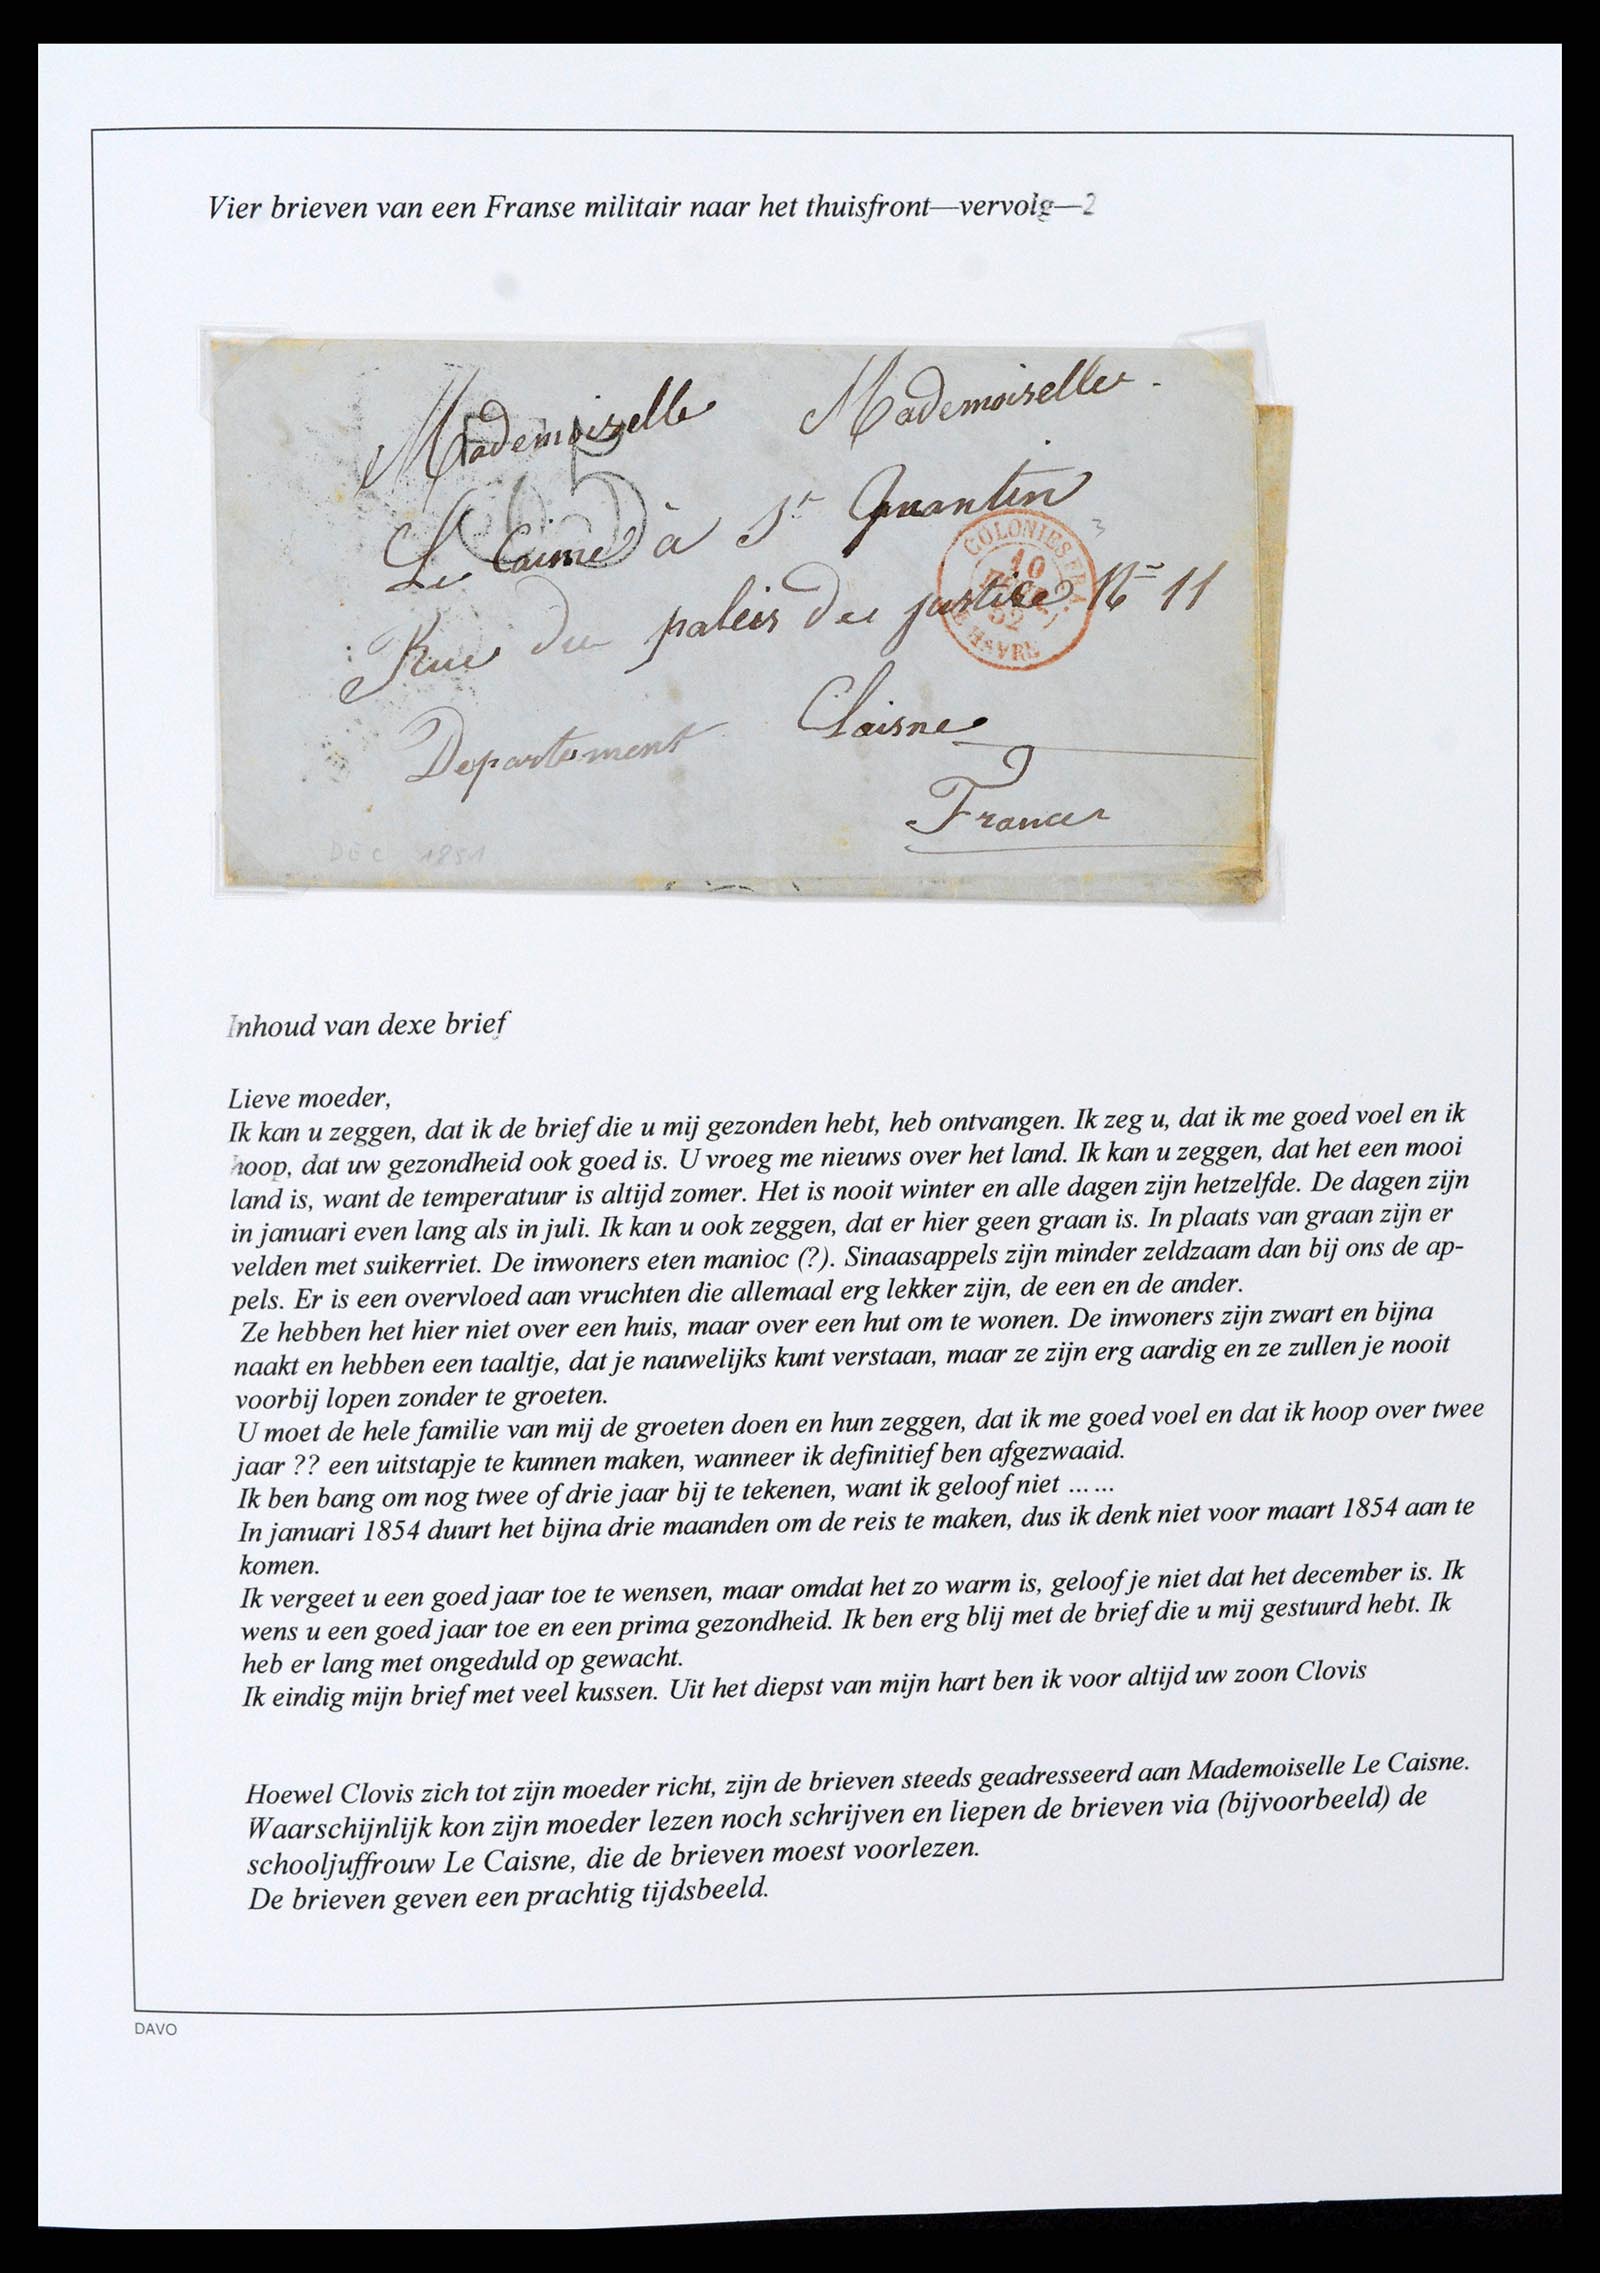 Vier brieven van een Franse militair naar het thuisfront—vervolg—2
Mademoiselle Mademoiselle
Le Caisne à St Quantin
Rue du palais de justice No 11
Departement Laisne
France
COLONIES FRA
10
52
LE HAVRE
DEC 1851
Inhoud van dexe brief
Lieve moeder,
Ik kan u zeggen, dat ik de brief die u mij gezonden hebt, heb ontvangen. Ik zeg u, dat ik me goed voel en ik
hoop, dat uw gezondheid ook goed is. U vroeg me nieuws over het land. Ik kan u zeggen, dat het een mooi
land is, want de temperatuur is altijd zomer. Het is nooit winter en alle dagen zijn hetzelfde. De dagen zijn
in januari even lang als in juli. Ik kan u ook zeggen, dat er hier geen graan is. In plaats van graan zijn er
velden met suikerriet. De inwoners eten manioc (?). Sinaasappels zijn minder zeldzaam dan bij ons de ap-
pels. Er is een overvloed aan vruchten die allemaal erg lekker zijn, de een en de ander.
Ze hebben het hier niet over een huis, maar over een hut om te wonen. De inwoners zijn zwart en bijna
naakt en hebben een taaltje, dat je nauwelijks kunt verstaan, maar ze zijn erg aardig en ze zullen je nooit
voorbij lopen zonder te groeten.
U moet de hele familie van mij de groeten doen en hun zeggen, dat ik me goed voel en dat ik hoop over twee
jaar ?? een uitstapje te kunnen maken, wanneer ik definitief ben afgezwaaid.
Ik ben bang om nog twee of drie jaar bij te tekenen, want ik geloof niet ……
In januari 1854 duurt het bijna drie maanden om de reis te maken, dus ik denk niet voor maart 1854 aan te
komen.
Ik vergeet u een goed jaar toe te wensen, maar omdat het zo warm is, geloof je niet dat het december is. Ik
wens u een goed jaar toe en een prima gezondheid. Ik ben erg blij met de brief die u mij gestuurd hebt. Ik
heb er lang met ongeduld op gewacht.
Ik eindig mijn brief met veel kussen. Uit het diepst van mijn hart ben ik voor altijd uw zoon Clovis
Hoewel Clovis zich tot zijn moeder richt, zijn de brieven steeds geadresseerd aan Mademoiselle Le Caisne.
Waarschijnlijk kon zijn moeder lezen noch schrijven en liepen de brieven via (bijvoorbeeld) de
schooljuffrouw Le Caisne, die de brieven moest voorlezen.
De brieven geven een prachtig tijdsbeeld.
DAVO